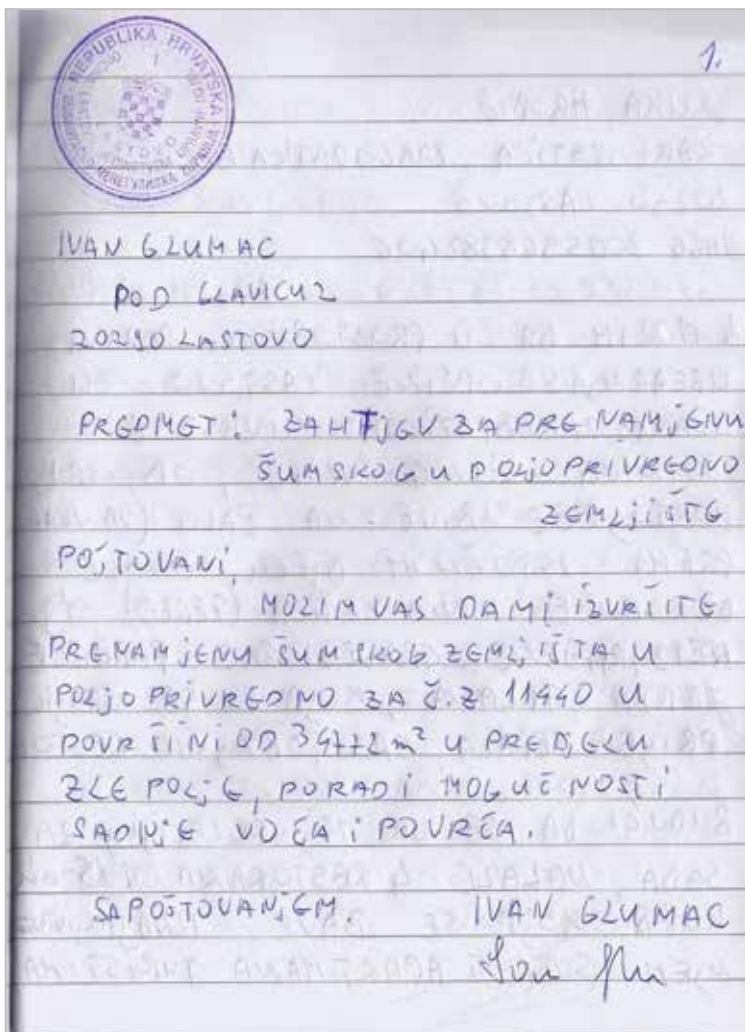 REPUBLIKA HRVATSKA
1.
IVAN GLUMAC
POD GLAVICU 2
20290 LASTOVO
PREDMET: ZAHTJEV ZA PRENAMJENU
ŠUMSKOG U POLJOPRIVREDNO
ZEMLJIŠTE
POŠTOVANI,
MOLIM VAS DA MI IZVRŠITE
PRENAMJENU ŠUMSKOG ZEMLJIŠTA U
POLJOPRIVREDNO ZA Č.Z 11440 U
POVRŠINI OD m² U PREDJELU
ZLE POLJE, PORADI MOGUĆNOSTI
SADNJE VOĆA I POVRĆA.
SA POŠTOVANJEM. IVAN GLUMAC